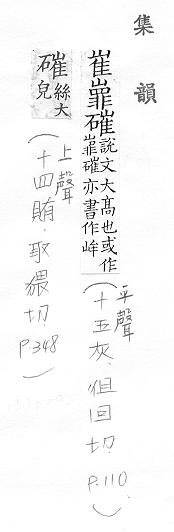 集韻
崔嶵磪
說文大高也或作
嶵磪亦書作
平聲
(十五灰, 徂回切. P.110.)
磪
大
皃
上聲
(十四賄. 取猥切. P.348)